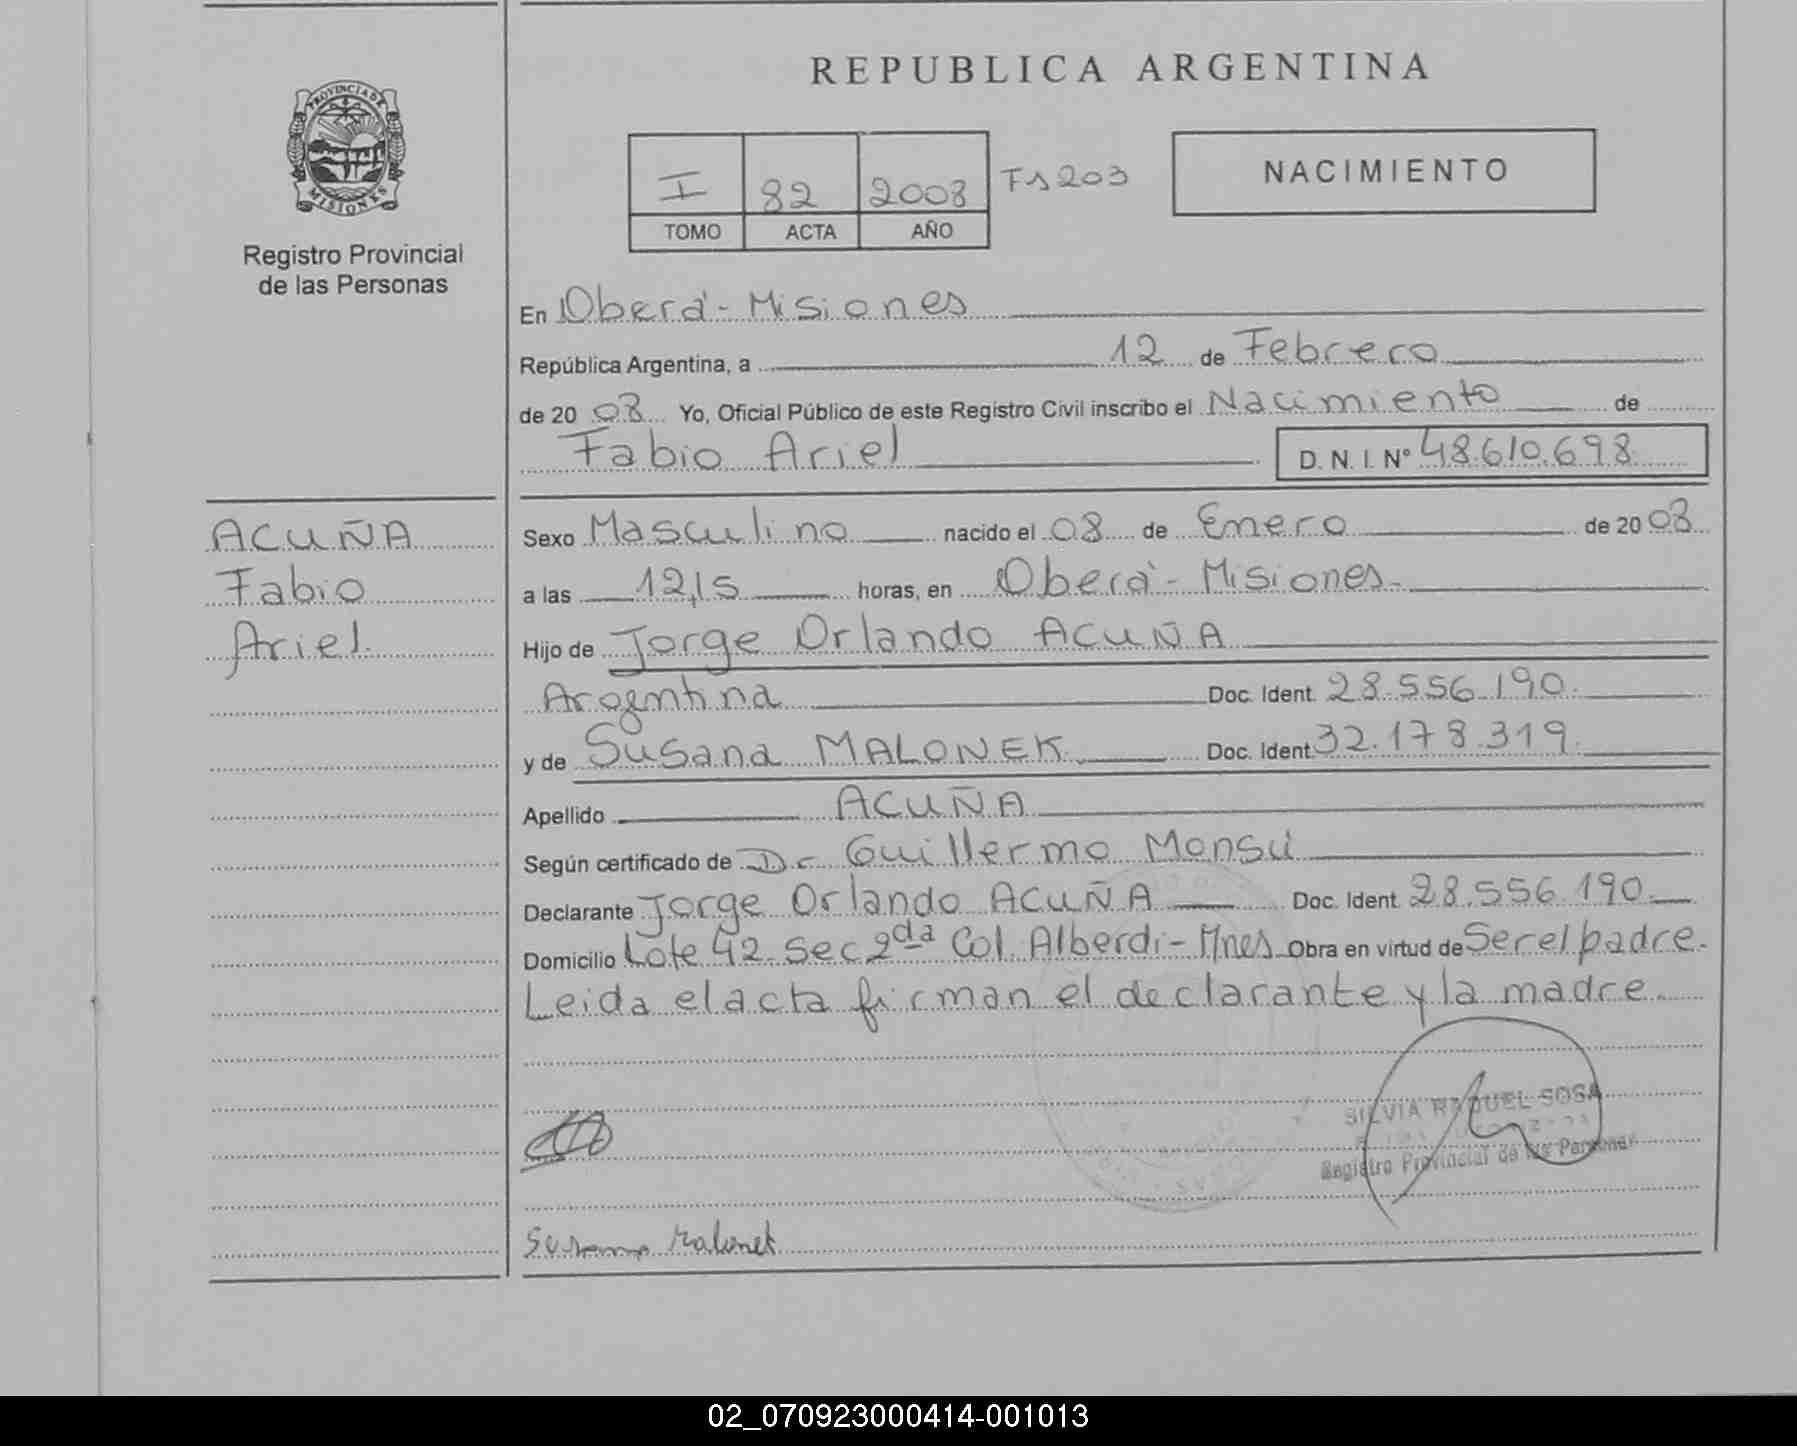 REPUBLICA ARGENTINA
PROVINCIA DE
MISIONES
Registro Provincial
de las Personas
I 82 2008 Fs 203
TOMO ACTA AÑO
NACIMIENTO
En Oberá - Misiones
República Argentina, a 12 de Febrero
de 20 08 Yo, Oficial Público de este Registro Civil inscribo el Nacimiento de
Fabio Ariel D. N. I. N° 48.610.698
ACUÑA
Fabio
Ariel.
Sexo Masculino nacido el 08 de Enero de 20 08
a las 12,15 horas, en Oberá - Misiones.
Hijo de Jorge Orlando ACUÑA
Argentina Doc. Ident. 28.556.190.
y de Susana MALONEK. Doc. Ident. 32.178.319.
Apellido ACUÑA
Según certificado de Dr Guillermo Monsú
Declarante Jorge Orlando ACUÑA Doc. Ident. 28.556.190.
Domicilio Lote 42 Sec 2da Col. Alberdi - Mnes Obra en virtud de Ser el padre.
Leida el acta firman el declarante y la madre.
SILVIA RAQUEL SOSA
Registro Provincial de las Personas
Susana Malonek
02_070923000414-001013